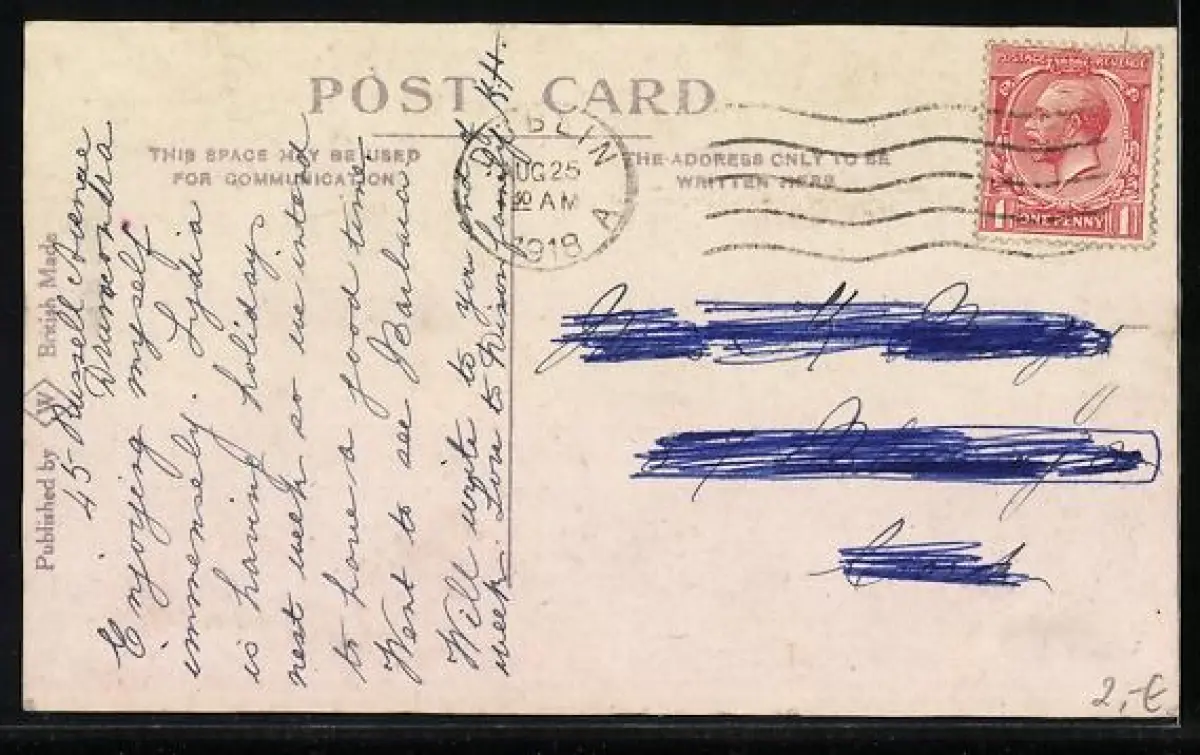 POST CARD
THIS SPACE MAY BE USED
FOR COMMUNICATION
THE ADDRESS ONLY TO BE
WRITTEN HERE
DUBLIN A
AUG 25
30 AM
1918
POSTAGE REVENUE
1 ONE PENNY 1
Published by W British Made
45 Russell Avenue
Drumcondra
Enjoying myself
immensely. Lydia
is having holidays
next week so we intend
to have a good time
Went to see
Will write to you next
week. Love to family
2,-€